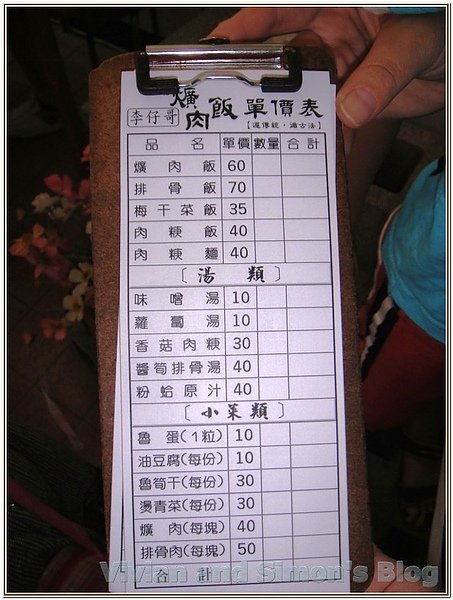 李仔哥 爌肉飯 單價表
【遵傳統‧遁古法】
品名 單價 數量 合計
爌肉飯 60
排骨飯 70
梅干菜飯 35
肉粳飯 40
肉粳麵 40
〔湯類〕
味噌湯 10
蘿蔔湯 10
香菇肉粳 30
醬筍排骨湯 40
粉蛤原汁 40
〔小菜類〕
魯蛋(1粒) 10
油豆腐(每份) 10
魯筍干(每份) 30
燙青菜(每份) 30
爌肉(每塊) 40
排骨肉(每塊) 50
合計
Vivian and Simon's Blog